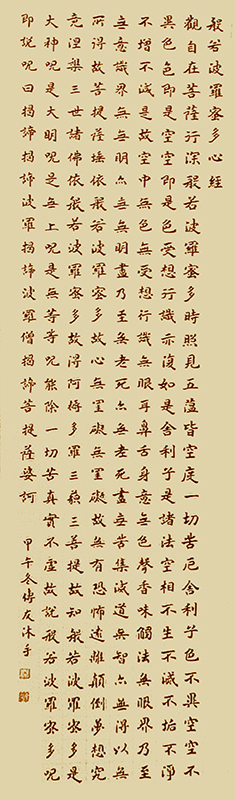 般若波羅蜜多心經
觀自在菩薩行深般若波羅蜜多時照見五蘊皆空度一切苦厄舍利子色不異空空不
異色色即是空空即是色受想行識亦復如是舍利子是諸法空相不生不滅不垢不淨
不增不減是故空中無色無受想行識無眼耳鼻舌身意無色聲香味觸法無眼界乃至
無意識界無無明亦無無明盡乃至無老死亦無老死盡無苦集滅道無智亦無得以無
所得故菩提薩埵依般若波羅蜜多故心無罣礙無罣礙故無有恐怖遠離顛倒夢想究
竟涅槃三世諸佛依般若波羅蜜多故得阿耨多羅三藐三菩提故知般若波羅蜜多是
大神呪是大明呪是無上呪是無等等呪能除一切苦真實不虛故說般若波羅蜜多呪
即說呪曰揭諦揭諦波羅揭諦波羅僧揭諦菩提薩婆訶 甲午冬 友沐手